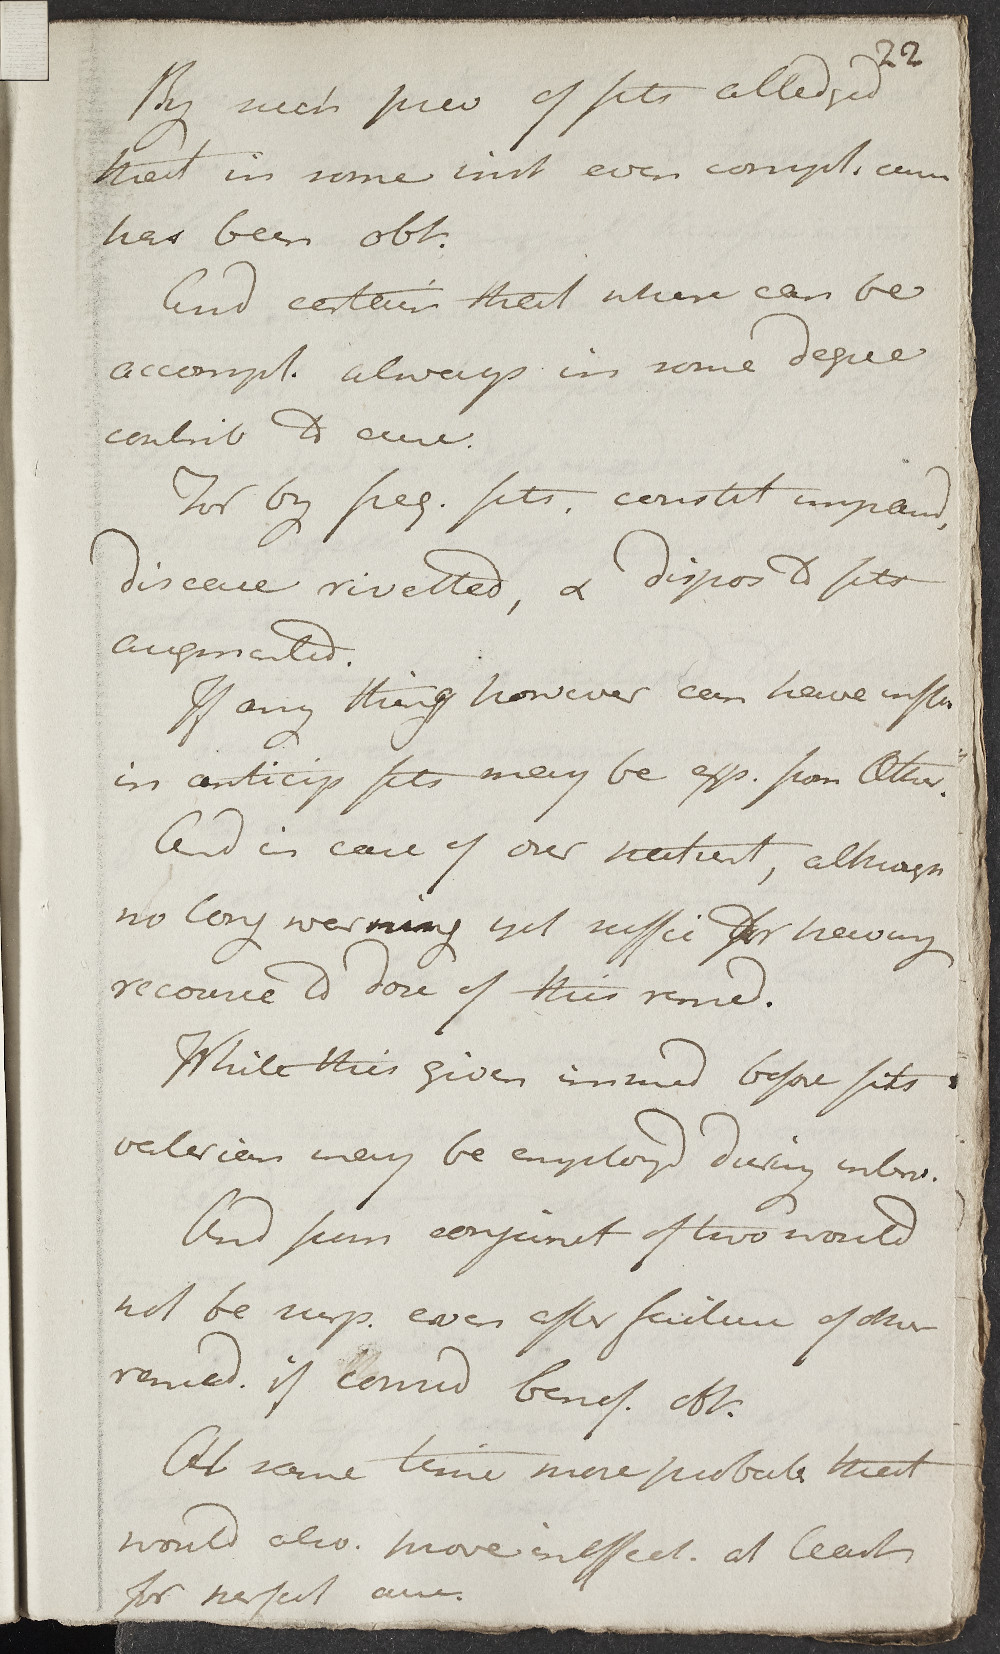 22
By such prev of fits alledged
that in some inst even compl. cure
has been obt.
And certain that where can be
accompl. always in some degree
contrib to cure.
For by freq. fits, constit impaird,
disease rivetted, & dispos to fits
augmented.
If any thing however can have influ
in anticip fits may be exp. from Ether.
And in case of our patient, although
no long warning yet suffici for having
recourse to dose of this remed.
While this given immed before fits
valerian may be employd during interv.
And from conjunct of two would
not be surp. even after failure of other
remed. if consid benef. obt.
At same time more probable that
would also. prove ineffect. at least
for perfect cure.